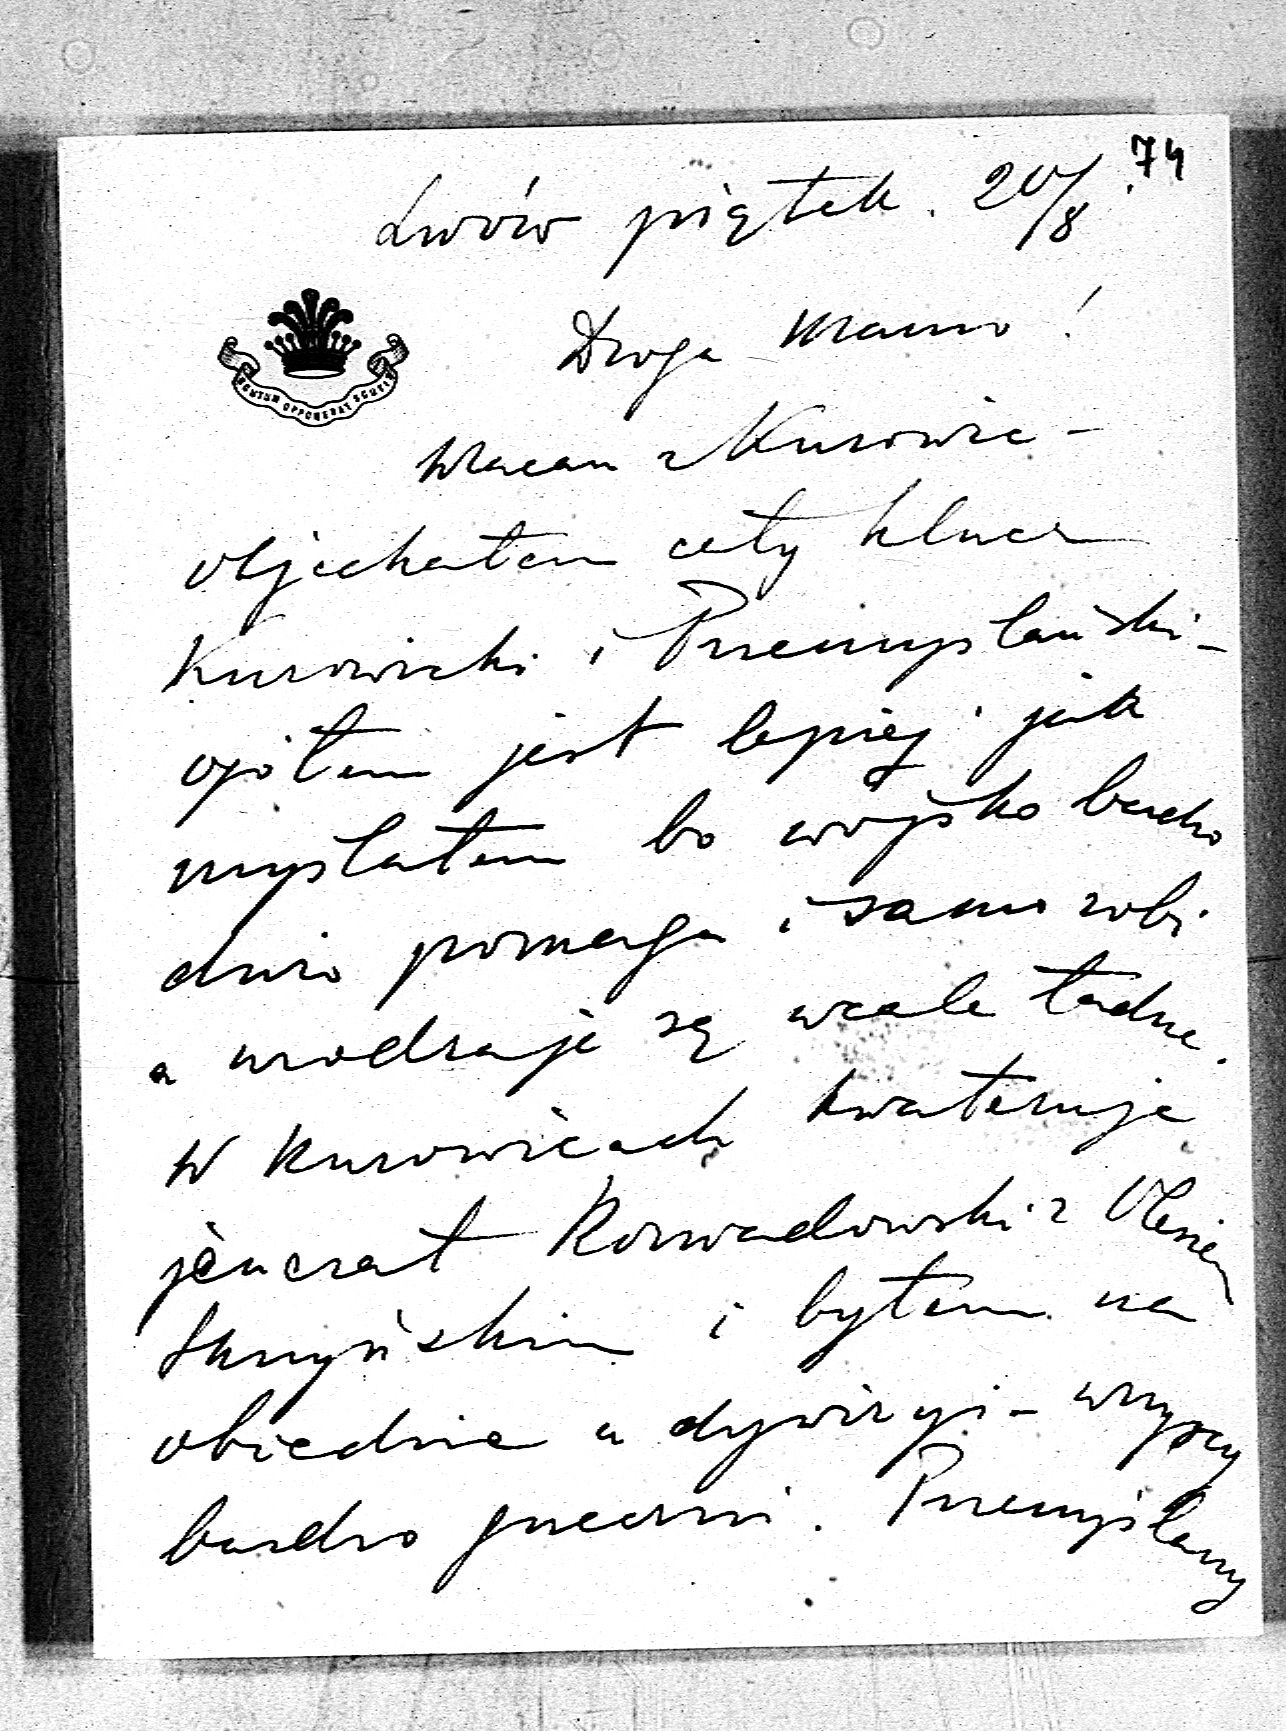 74
Lwów piątek. 20/8.
Droga Mamo!
SCUTUM OPPONEBAT SCUTIS
Wracam z Kurowic –
objechałem cały klucz
Kurowicki i Przemyślański –
ogółem jest lepiej jak
myślałem bo wojsko bardzo
dużo pomaga i samo robi
a urodzaje są wcale ładne.
W Kurowicach kwateruje
jenerał Rozwadowski z Olesiem
Skrzyńskim i byłem na
obiedzie u dywizyi – wszyscy
bardzo grzeczni. Przemyślany